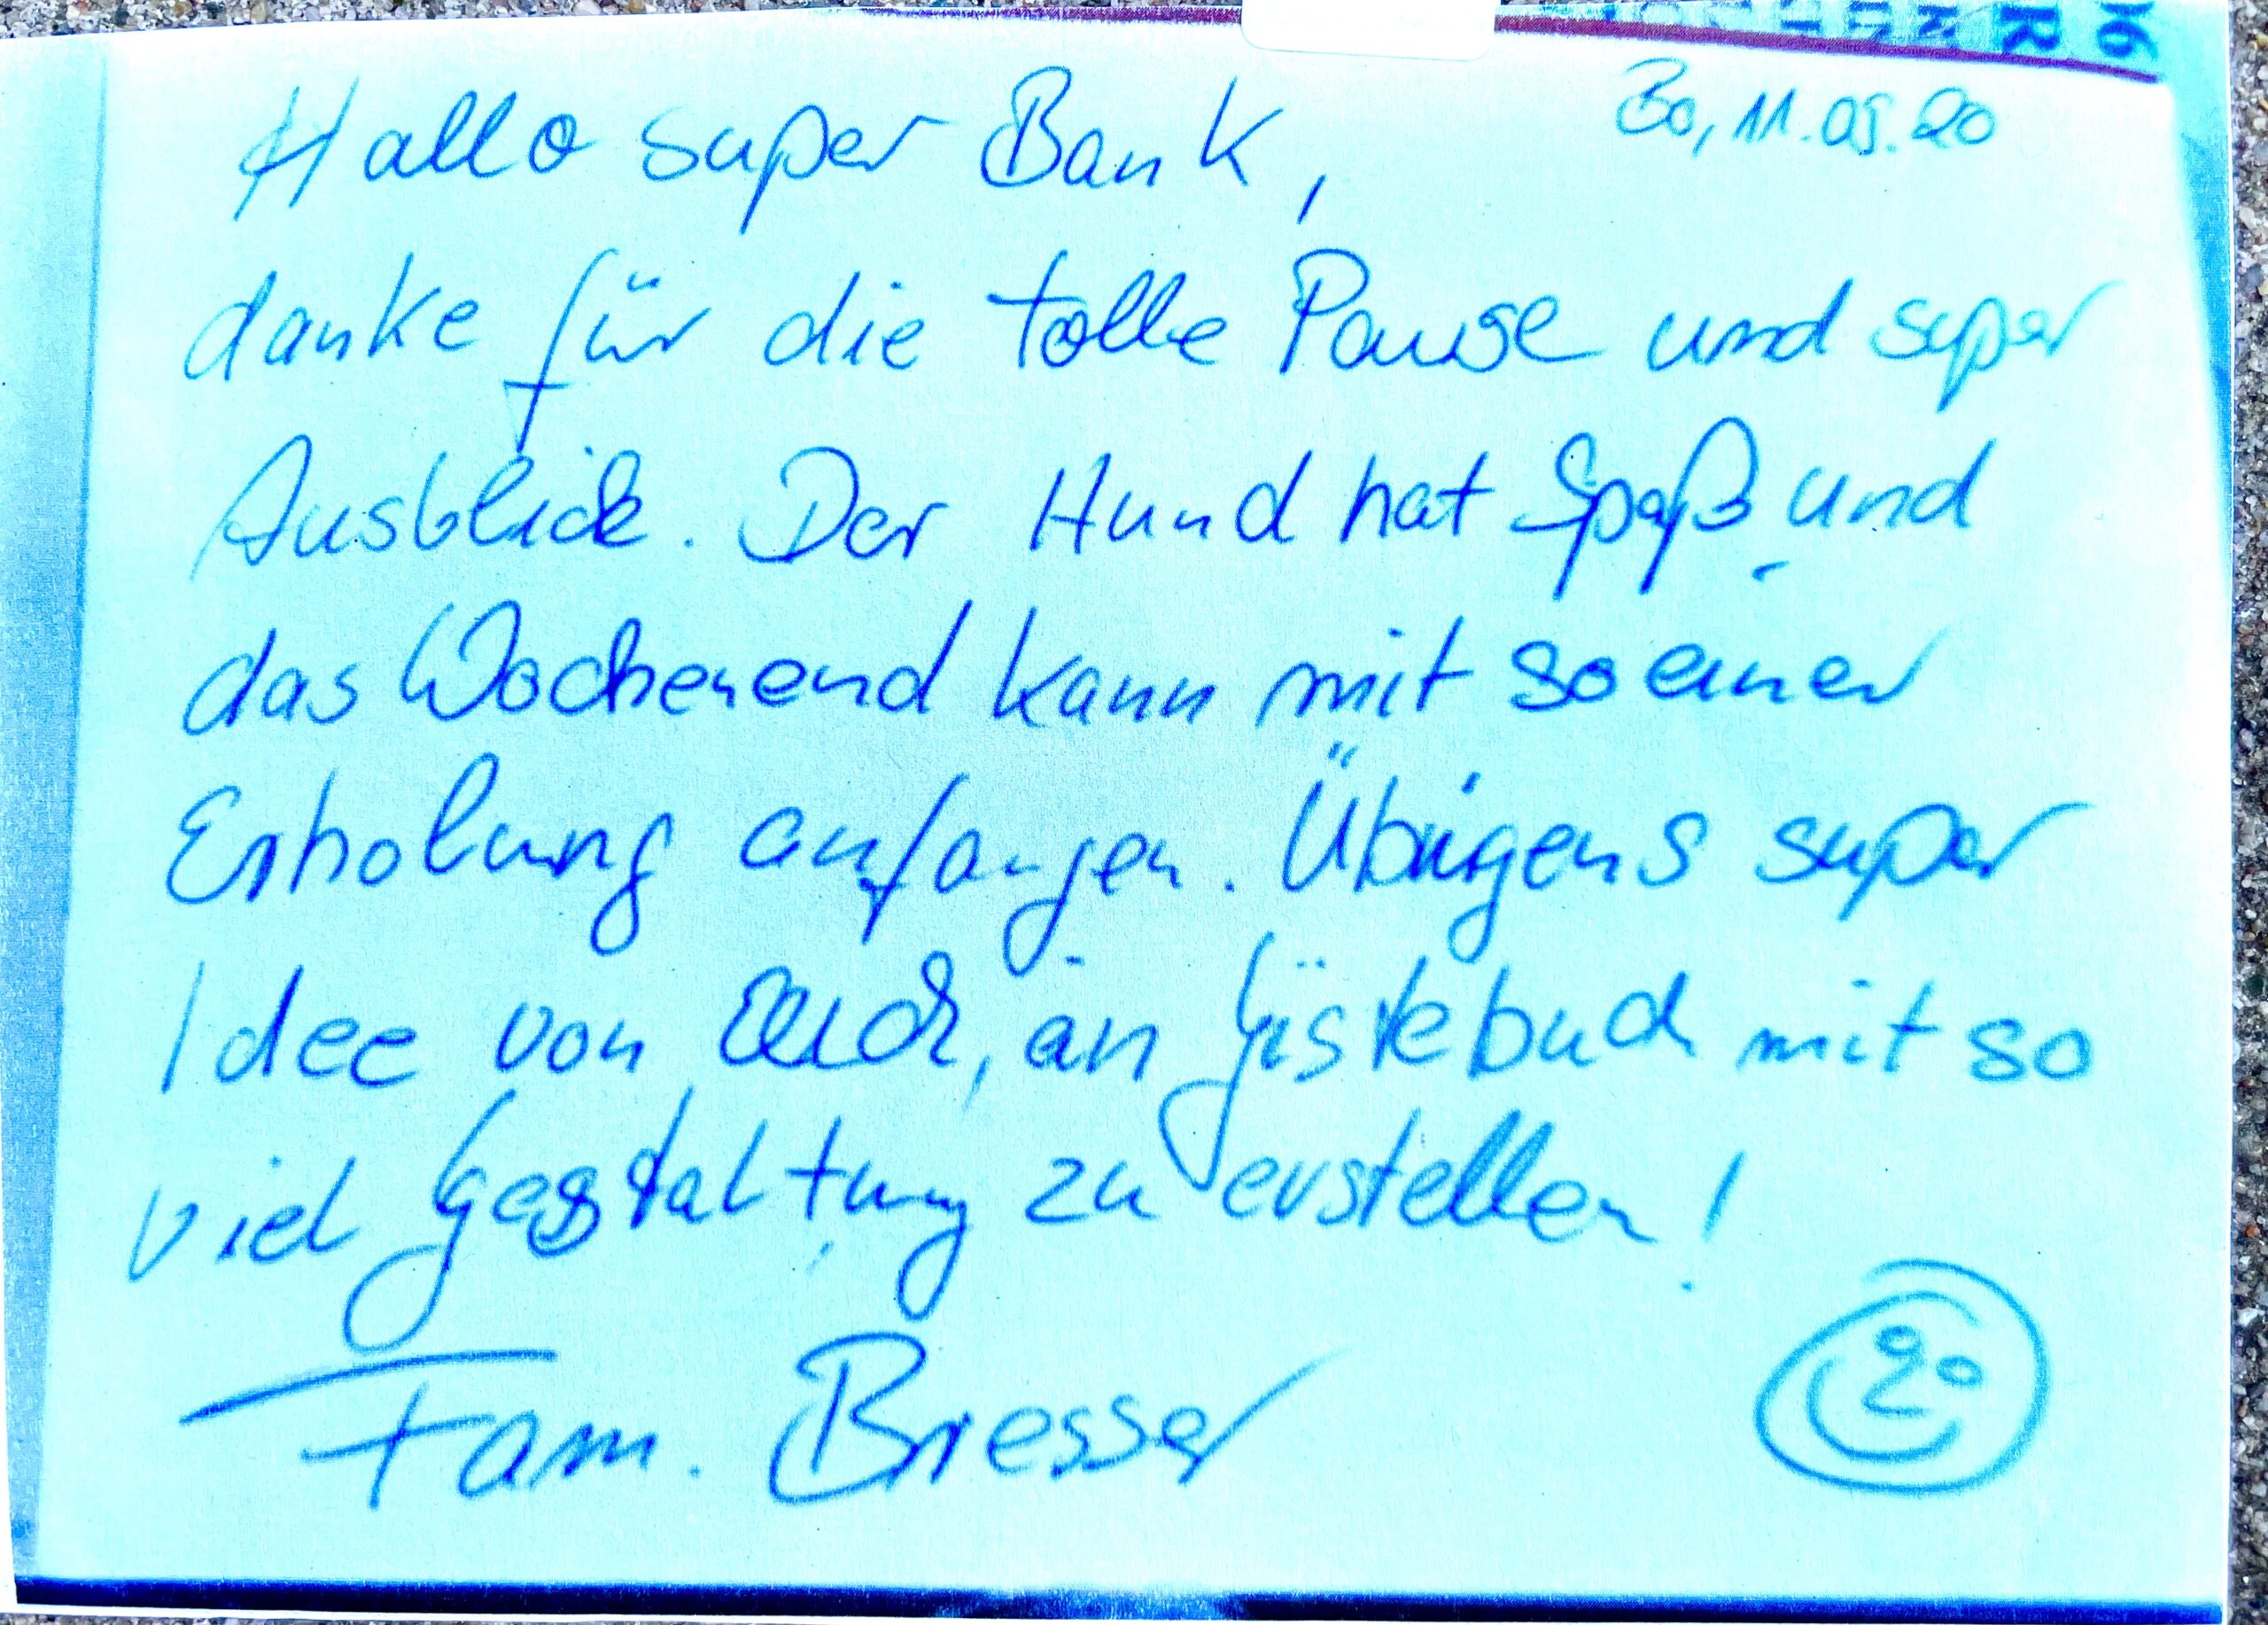 Bo, 11.09.20
Hallo super Bank,
danke für die tolle Pause und super
Ausblick. Der Hund hat Spaß und
das Wochenend kann mit so einer
Erholung anfangen. Übrigens super
Idee von Euch, ein Gästebuch mit so
viel Gestaltung zu erstellen!
Fam. Bresser